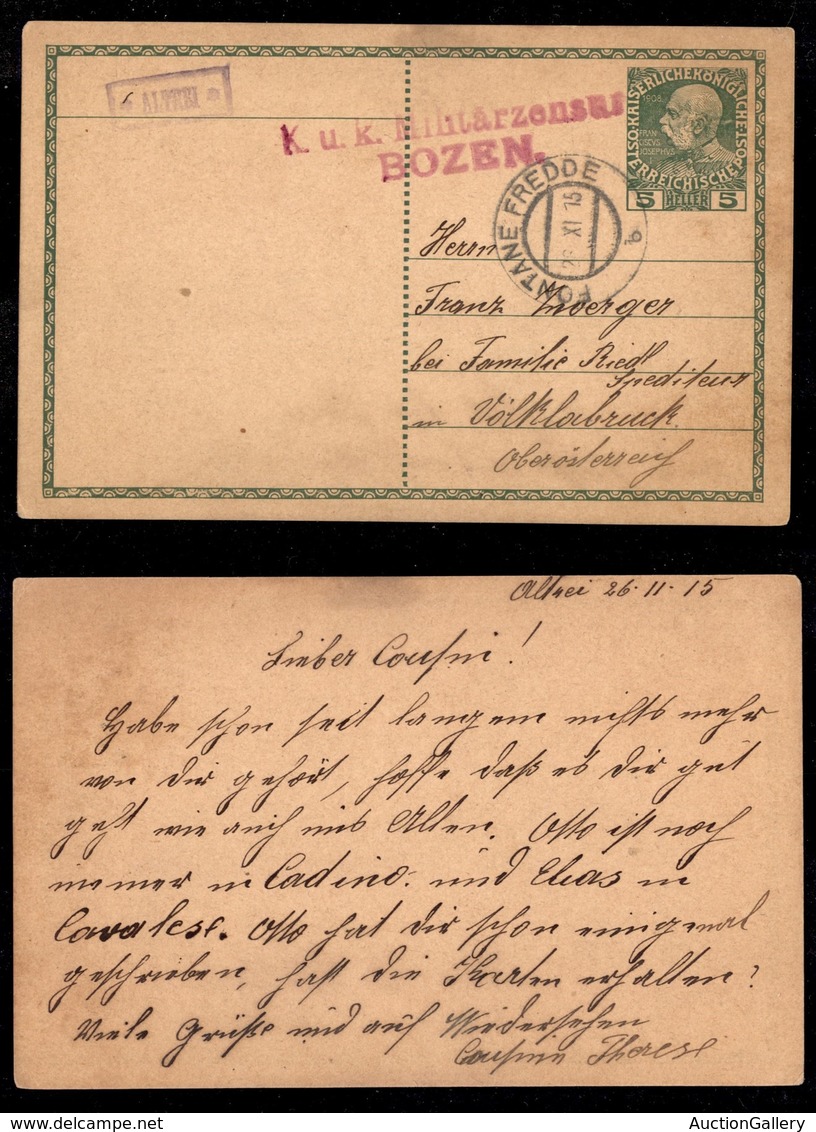 * ALTREI *
K. u. k. Militärzensur
BOZEN.
1908
FRAN
CISCVS
JOSEPHVS
KAISERLICHEKÖNIGLICHE
ÖSTERREICHISCHE
5 HELLER 5
FONTANE FREDDE
XI 15
a
Herrn
Franz Zwerger
bei Familie Riedl
Spediteur
in Völklabruck
Oberösterreich
Altrei 26.11.15
Lieber Cousin!
Habe schon seit langem nichts mehr
von Dir gehört, hoffe daß es Dir gut
geht wie auch uns Allen. Otto ist noch
immer in Cadino. und Elias in
Cavalese. Otto hat Dir schon einigemal
geschrieben, hast die Karten erhalten?
Viele Grüße und auf Wiedersehen
Cousine Therese
AuctionGallery